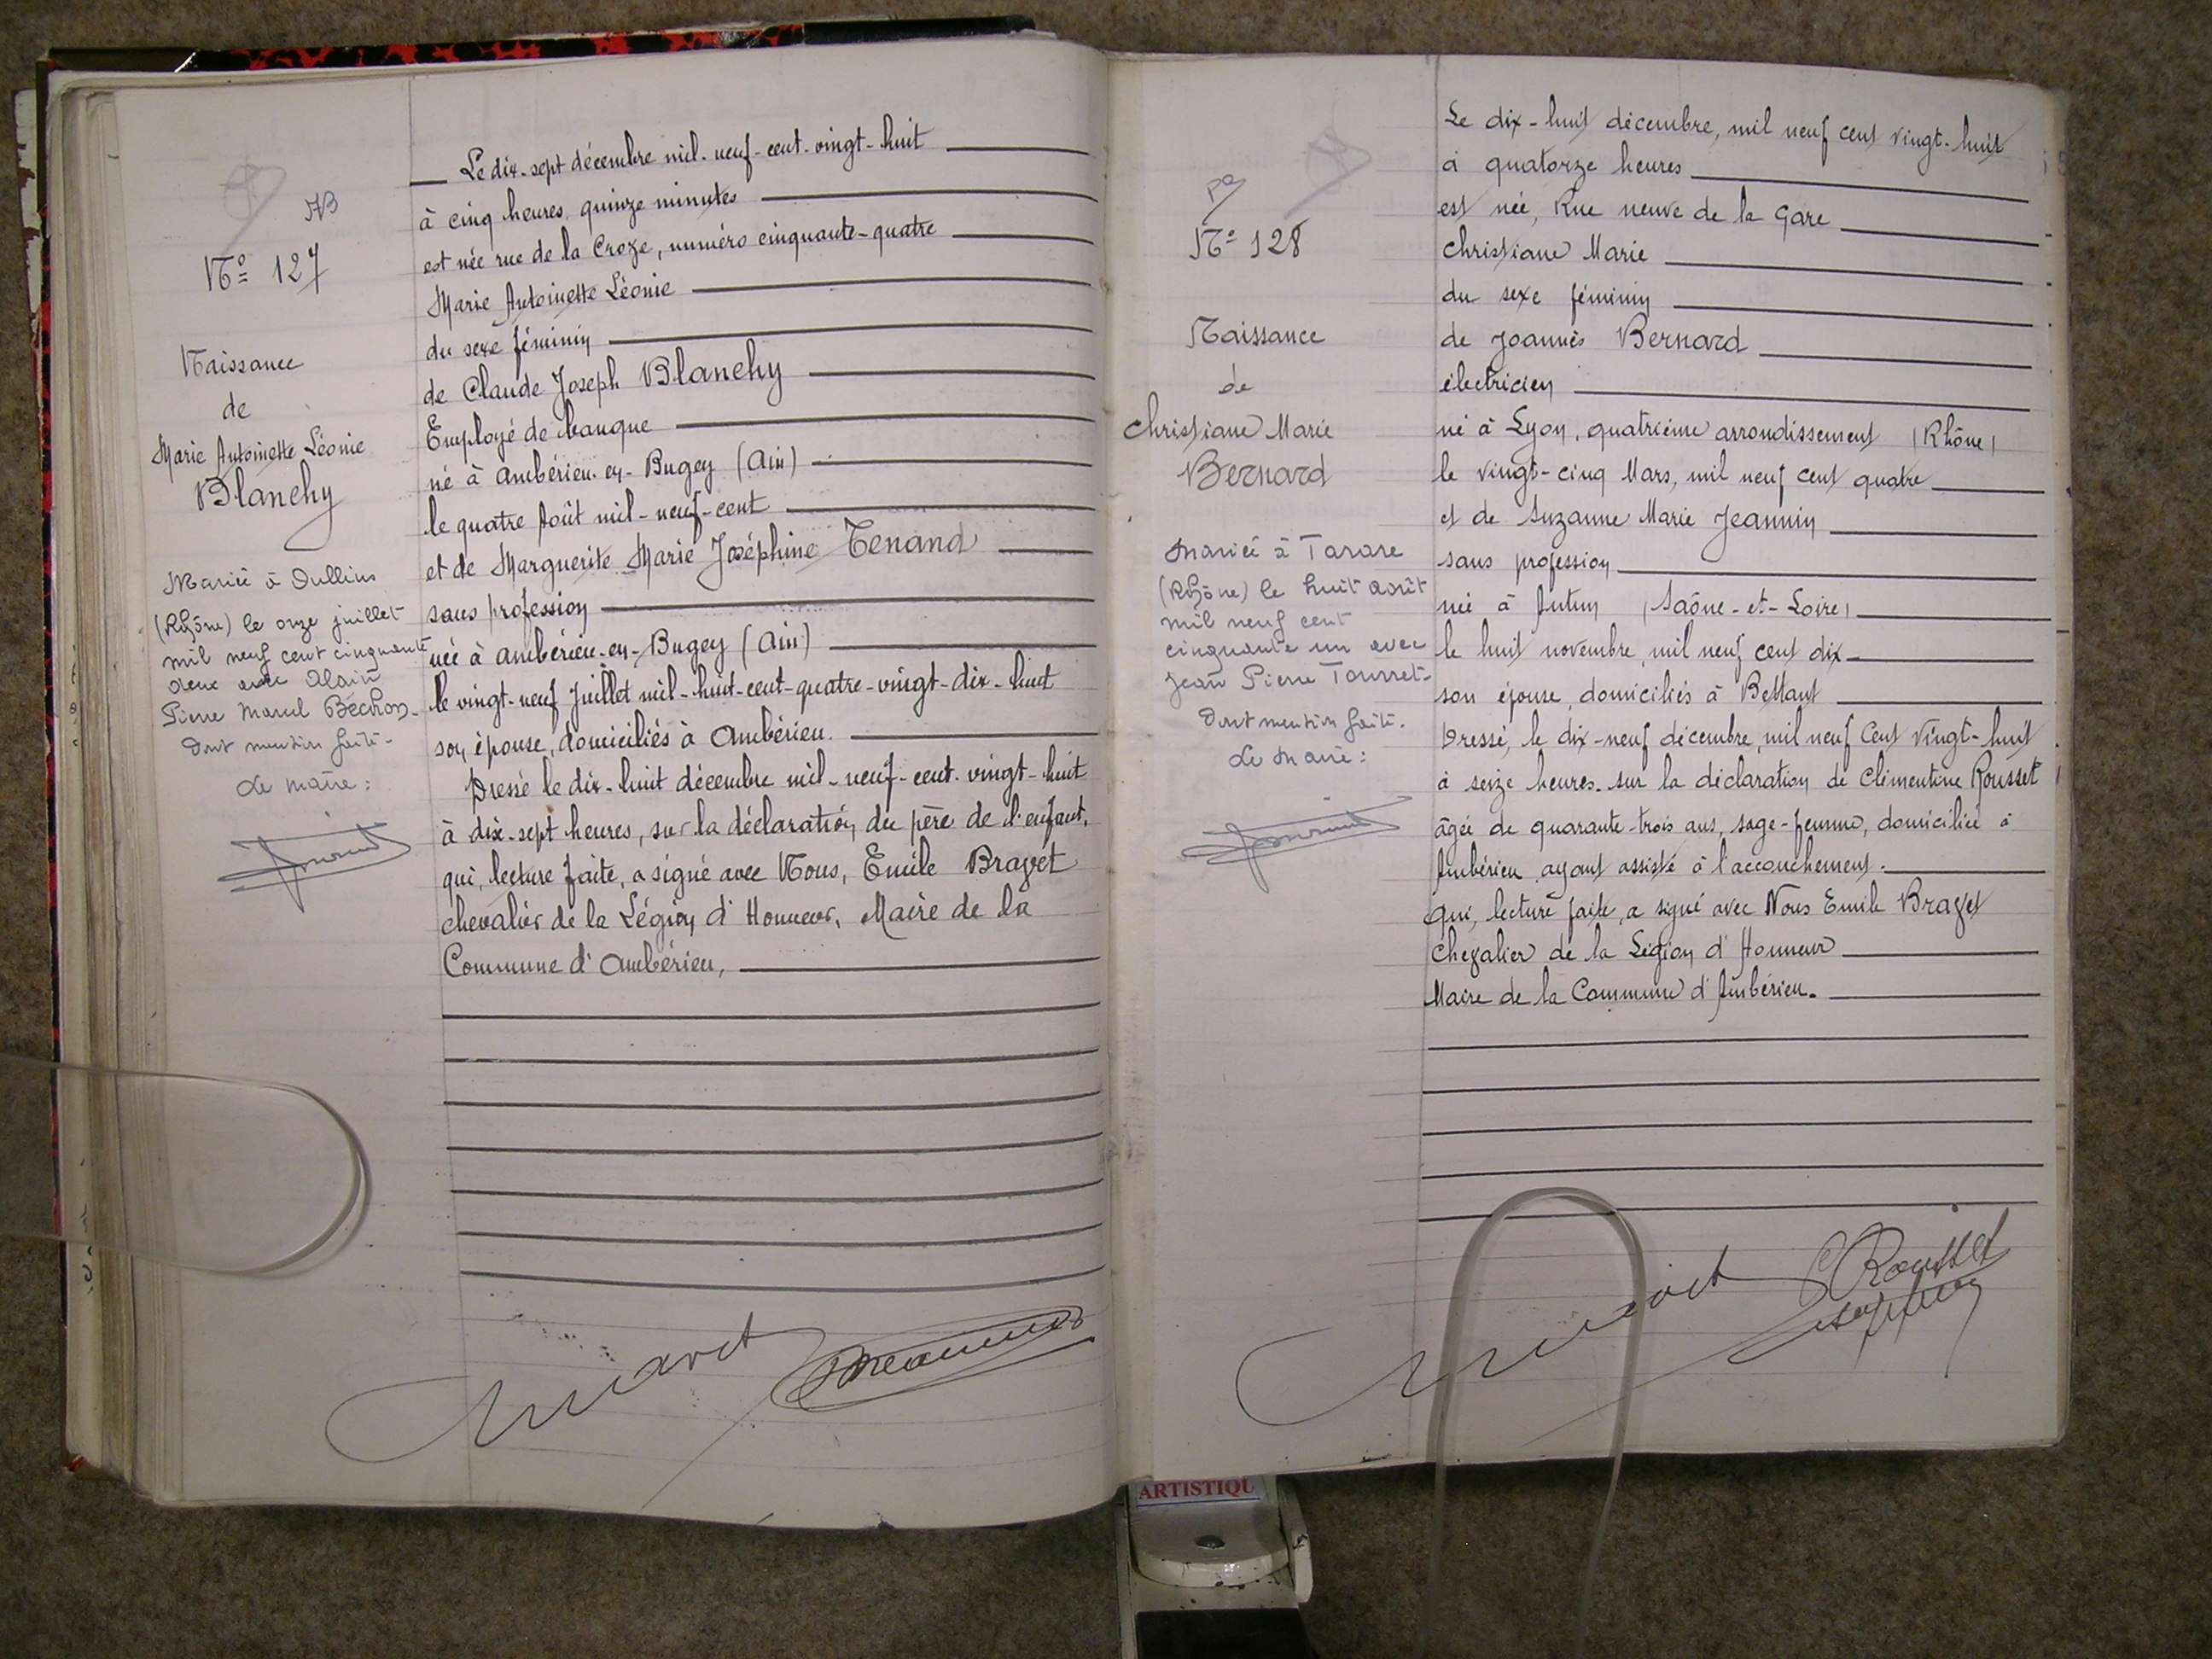 N° 127
Naissance
de
Marie Antoinette Léonie
Blanchy
Mariée à Oullins
(Rhône) le onze juillet
mil neuf cent cinquante
deux avec Alain
Pierre Marcel Béchon.
Dont mention faite.
Le maire :
Le dix-sept décembre mil-neuf-cent-vingt-huit
à cinq heures quinze minutes
est née rue de la Croze, numéro cinquante-quatre
Marie Antoinette Léonie
du sexe féminin
de Claude Joseph Blanchy
Employé de banque
né à Ambérieu-en-Bugey (Ain)
le quatre Août mil-neuf-cent
et de Marguerite Marie Joséphine Tenand
sans profession
née à Ambérieu-en-Bugey (Ain)
le vingt-neuf Juillet mil-huit-cent-quatre-vingt-dix-huit
son épouse, domiciliés à Ambérieu.
Dressé le dix-huit décembre mil-neuf-cent-vingt-huit
à dix-sept heures, sur la déclaration du père de l'enfant,
qui, lecture faite, a signé avec Nous, Emile Bravet
chevalier de la Légion d'Honneur, Maire de la
Commune d'Ambérieu,
N° 128
Naissance
de
Christiane Marie
Bernard
Mariée à Tarare
(Rhône) le huit août
mil neuf cent
cinquante un avec
Jean Pierre Tourret.
Dont mention faite.
Le Maire :
Le dix-huit décembre, mil neuf cent vingt-huit
à quatorze heures
est née, Rue neuve de la Gare
Christiane Marie
du sexe féminin
de Joannès Bernard
électricien
né à Lyon, quatrième arrondissement (Rhône)
le vingt-cinq Mars, mil neuf cent quatre
et de Suzanne Marie Jeannin
sans profession
née à Autun (Saône-et-Loire)
le huit novembre, mil neuf cent dix
son épouse, domiciliés à Bettant
Dressé, le dix-neuf décembre, mil neuf cent vingt-huit
à seize heures. sur la déclaration de Clémentine Rousset
âgée de quarante-trois ans, sage-femme, domiciliée à
Ambérieu ayant assisté à l'accouchement.
qui, lecture faite, a signé avec Nous Emile Bravet
Chevalier de la Légion d'Honneur
Maire de la Commune d'Ambérieu.
C Rousset
ARTISTIQU